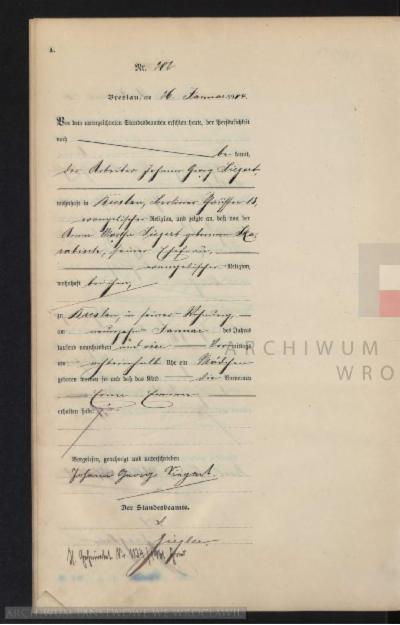 A.
Nr. 282
Breslau, am 26 Januar 1904.
Vor dem unterzeichneten Standesbeamten erschien heute, der Persönlichkeit
nach
be kannt,
der Arbeiter Johann Georg Siegert
wohnhaft in Breslau, Berliner Chaussee
evangelischer Religion, und zeigte an, daß von der
Anna Martha Siegert geborenen
seiner Ehefrau,
evangelischer Religion,
wohnhaft bei ihm,
zu Breslau, in seiner Wohnung,
am neunzehn Januar des Jahres
tausend neunhundert und vier Vormittags
um Uhr ein Mädchen
geboren worden sei und daß das Kind die Vornamen
Erna Emma
erhalten habe.
Vorgelesen, genehmigt und unterschrieben
Johann Georg Siegert.
Der Standesbeamte.
Ziegler
ARCHIWUM
WRO
ARCHIWUM PAŃSTWOWE WE WROCŁAWIU